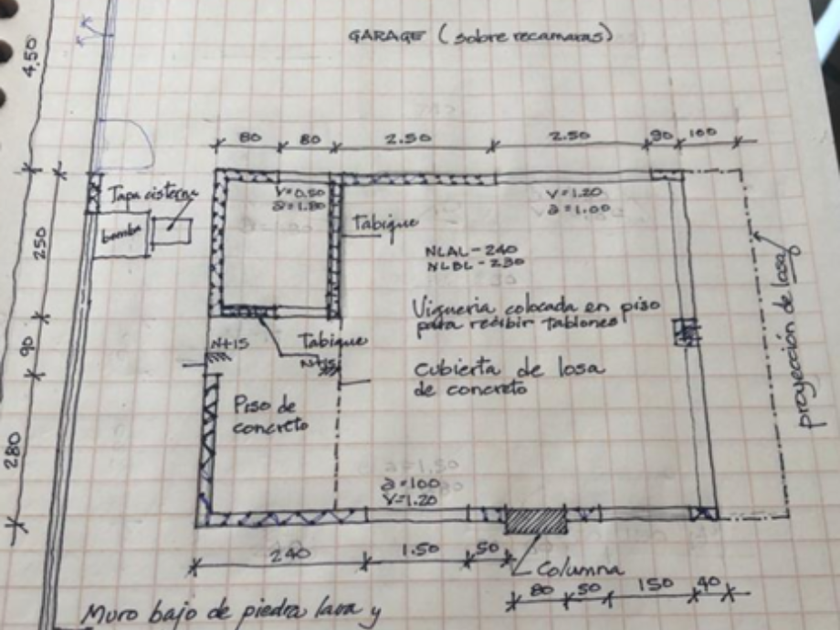 GARAGE (sobre recamaras)
4.50
80 80 2.50 2.50 90 100
Tapa cisterna
bomba
V=0.50
a=1.80
V=1.20
a=1.00
Tabique
250
NLAL-240
NLBL-230
Vigueria colocada en piso
para recibir tablones
proyección de losa
N+15
Tabique
N+15
90
Cubierta de losa
de concreto
Piso de
concreto
280
a=100
V=1.20
240 1.50 50
Columna
80 50 150 40
Muro bajo de piedra lava y